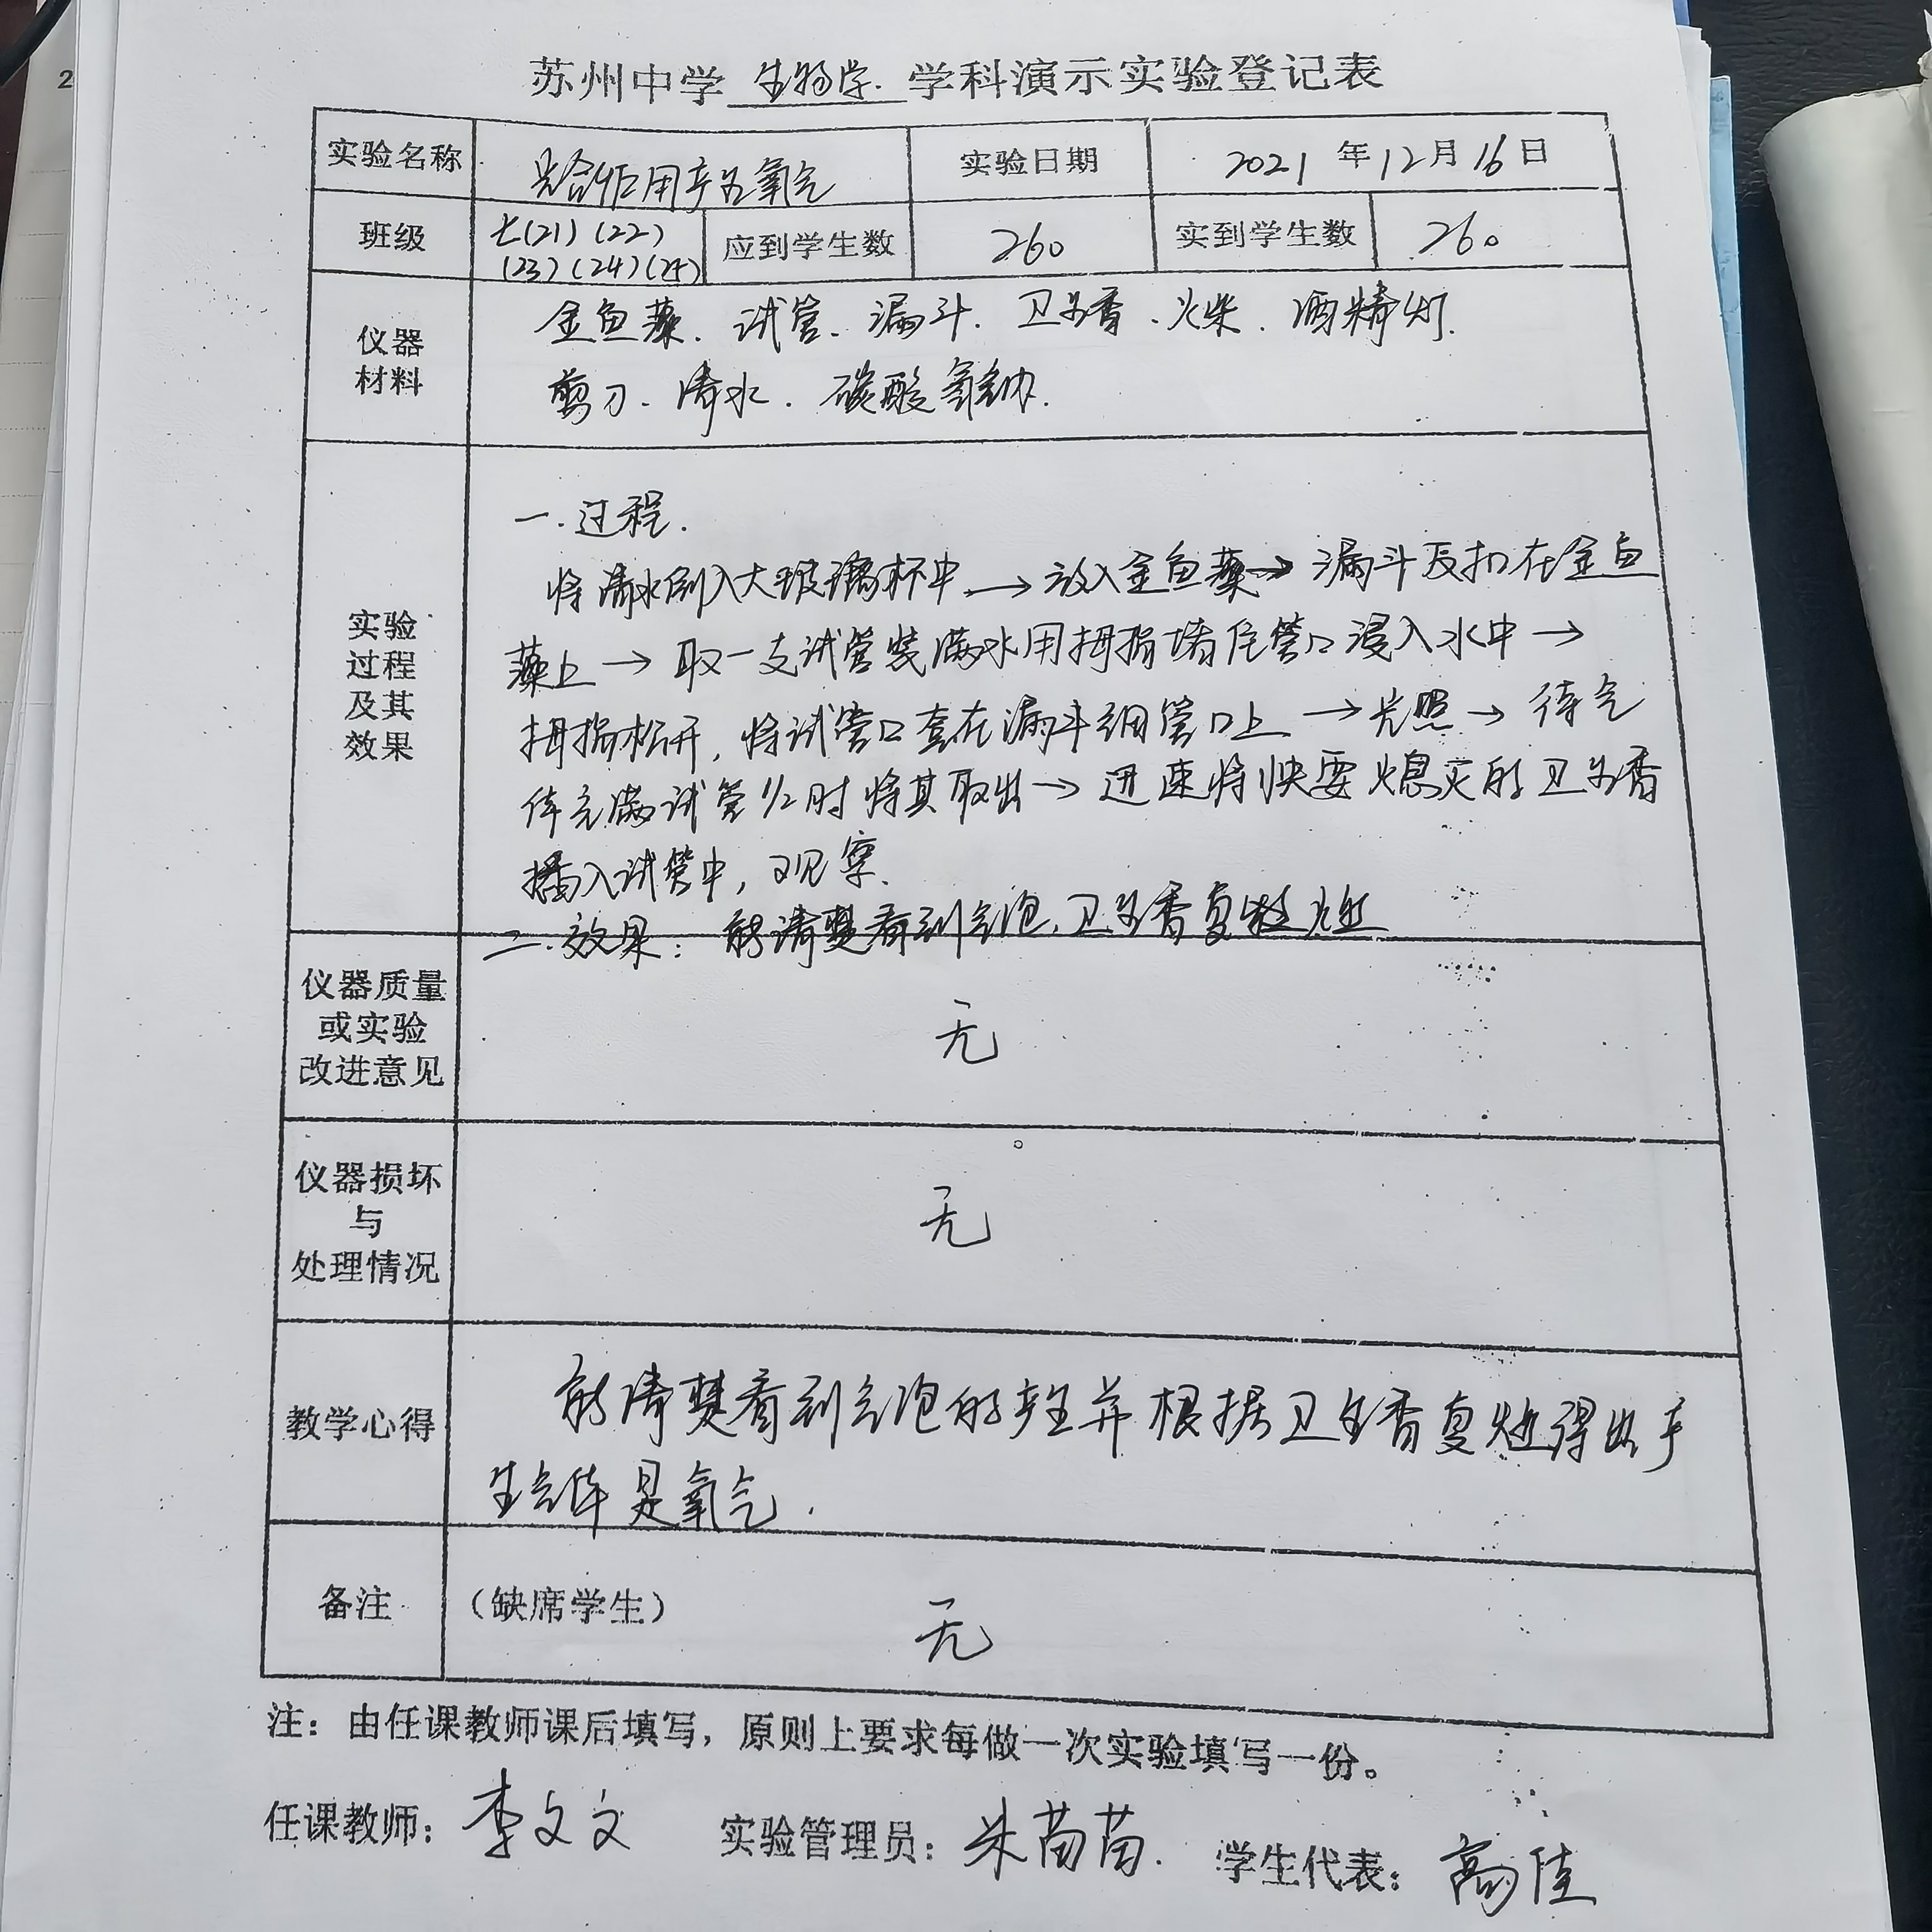 苏州中学 生物学 学科演示实验登记表
实验名称 光合作用产生氧气 实验日期 2021 年 12 月 16 日
班级 七(21)(22) 应到学生数 260 实到学生数 260
(23)(24)(25)
仪器
材料
金鱼藻、试管、漏斗、卫生香、火柴、酒精灯、
剪刀、清水、碳酸氢钠.
实验
过程
及其
效果
一.过程.
将清水倒入大玻璃杯中→放入金鱼藻→漏斗反扣在金鱼
藻上→取一支试管装满水用拇指堵住管口浸入水中→
拇指松开,将试管口套在漏斗细管口上→光照→待气
体充满试管1/2时将其取出→迅速将快要熄灭的卫生香
插入试管中,观察.
二.效果:能清楚看到气泡,卫生香复燃
仪器质量
或实验
改进意见
无
仪器损坏
与
处理情况
无
教学心得
能清楚看到气泡的产生并根据卫生香复燃得出产
生气体是氧气.
备注 (缺席学生) 无
注:由任课教师课后填写,原则上要求每做一次实验填写一份。
任课教师: 李文文 实验管理员: 朱苗苗. 学生代表: 高佳